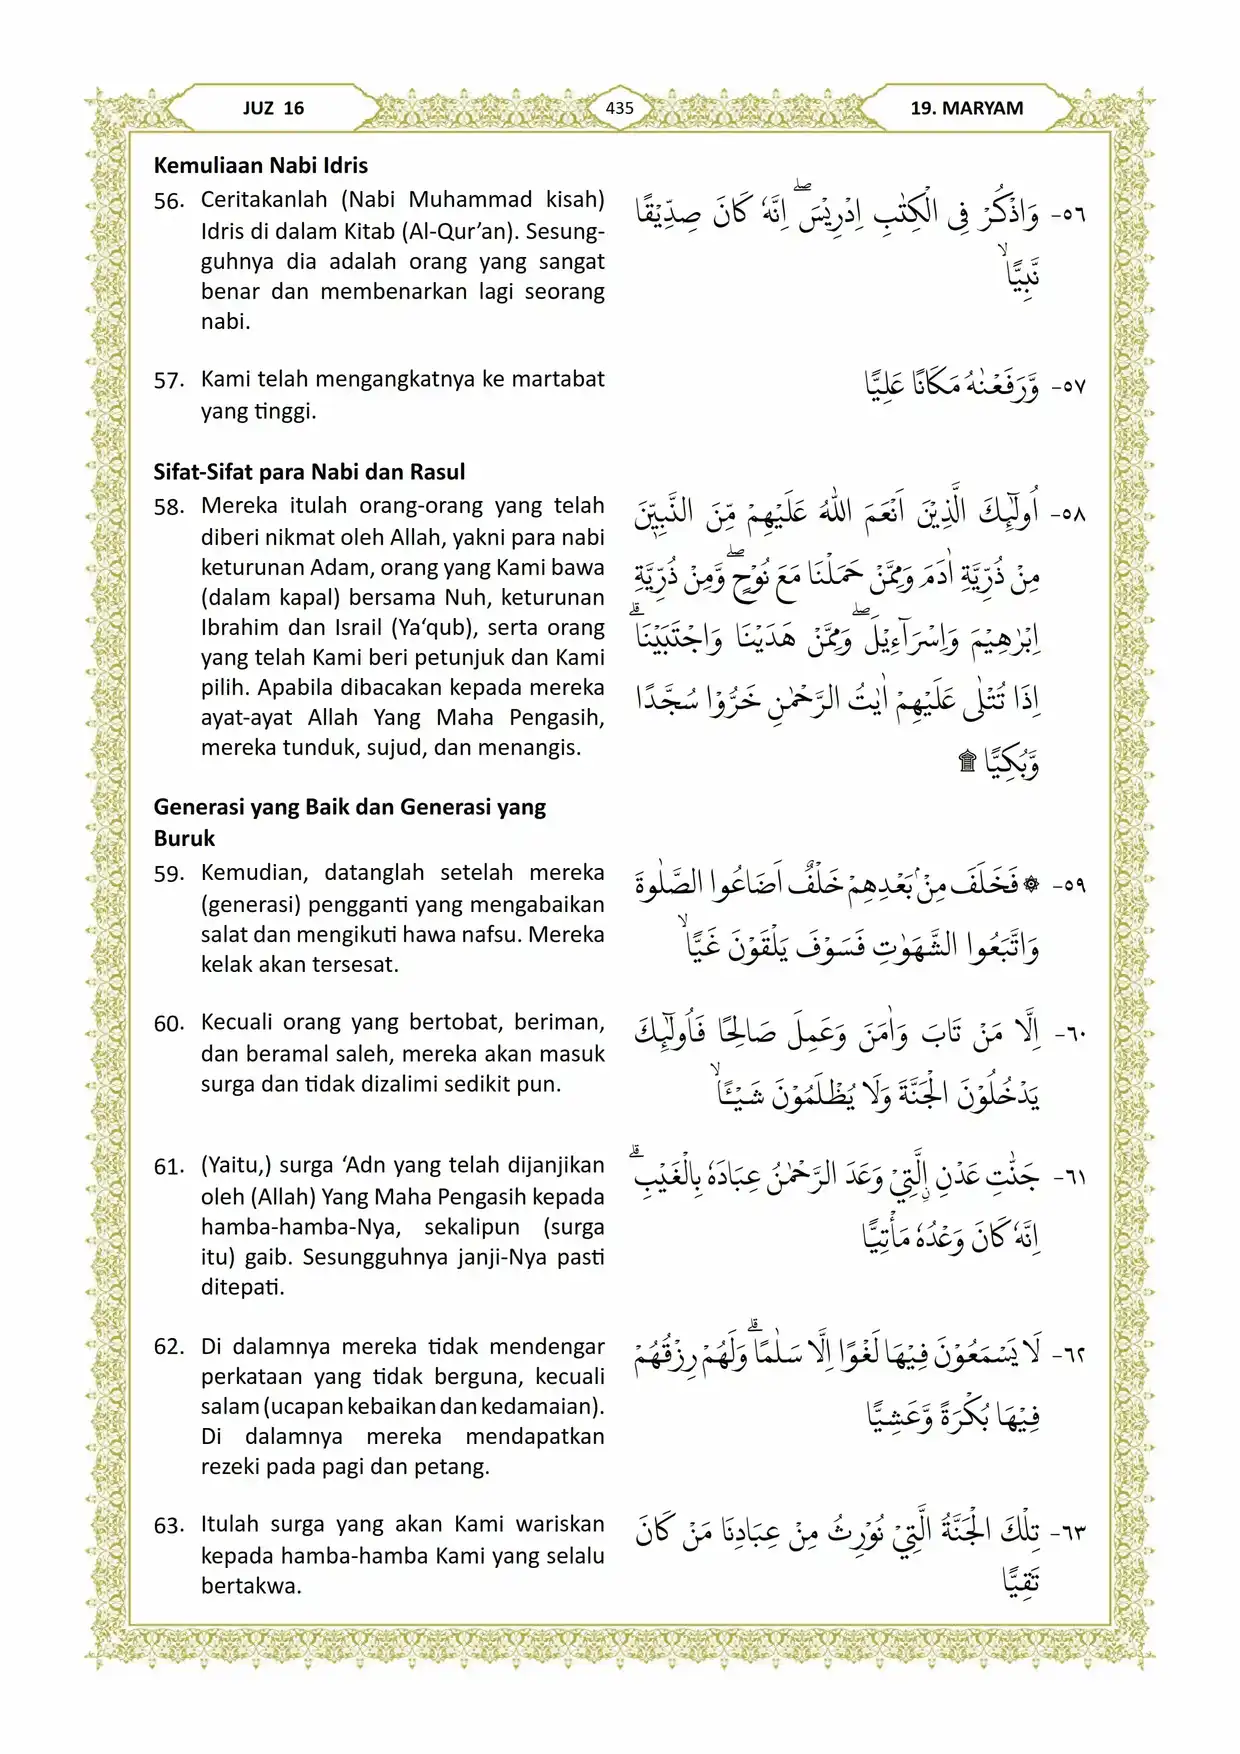 JUZ 16
435
19. MARYAM
Kemuliaan Nabi Idris
56. Ceritakanlah (Nabi Muhammad kisah)
Idris di dalam Kitab (Al-Qur’an). Sesung-
guhnya dia adalah orang yang sangat
benar dan membenarkan lagi seorang
nabi.
٥٦- وَاذْكُرْ فِى الْكِتٰبِ اِدْرِيْسَۖ اِنَّهٗ كَانَ صِدِّيْقًا
نَّبِيًّاۙ
57. Kami telah mengangkatnya ke martabat
yang tinggi.
٥٧- وَّرَفَعْنٰهُ مَكَانًا عَلِيًّا
Sifat-Sifat para Nabi dan Rasul
58. Mereka itulah orang-orang yang telah
diberi nikmat oleh Allah, yakni para nabi
keturunan Adam, orang yang Kami bawa
(dalam kapal) bersama Nuh, keturunan
Ibrahim dan Israil (Ya‘qub), serta orang
yang telah Kami beri petunjuk dan Kami
pilih. Apabila dibacakan kepada mereka
ayat-ayat Allah Yang Maha Pengasih,
mereka tunduk, sujud, dan menangis.
٥٨- اُولٰۤىِٕكَ الَّذِيْنَ اَنْعَمَ اللّٰهُ عَلَيْهِمْ مِّنَ النَّبِيّٖنَ
مِنْ ذُرِّيَّةِ اٰدَمَ وَمِمَّنْ حَمَلْنَا مَعَ نُوْحٍۖ وَّمِنْ ذُرِّيَّةِ
اِبْرٰهِيْمَ وَاِسْرَاۤءِيْلَۖ وَمِمَّنْ هَدَيْنَا وَاجْتَبَيْنَاۗ
اِذَا تُتْلٰى عَلَيْهِمْ اٰيٰتُ الرَّحْمٰنِ خَرُّوْا سُجَّدًا
وَّبُكِيًّا ۩
Generasi yang Baik dan Generasi yang
Buruk
59. Kemudian, datanglah setelah mereka
(generasi) pengganti yang mengabaikan
salat dan mengikuti hawa nafsu. Mereka
kelak akan tersesat.
٥٩- ۞ فَخَلَفَ مِنْۢ بَعْدِهِمْ خَلْفٌ اَضَاعُوا الصَّلٰوةَ
وَاتَّبَعُوا الشَّهَوٰتِ فَسَوْفَ يَلْقَوْنَ غَيًّاۙ
60. Kecuali orang yang bertobat, beriman,
dan beramal saleh, mereka akan masuk
surga dan tidak dizalimi sedikit pun.
٦٠- اِلَّا مَنْ تَابَ وَاٰمَنَ وَعَمِلَ صَالِحًا فَاُولٰۤىِٕكَ
يَدْخُلُوْنَ الْجَنَّةَ وَلَا يُظْلَمُوْنَ شَيْـًٔاۙ
61. (Yaitu,) surga ‘Adn yang telah dijanjikan
oleh (Allah) Yang Maha Pengasih kepada
hamba-hamba-Nya, sekalipun (surga
itu) gaib. Sesungguhnya janji-Nya pasti
ditepati.
٦١- جَنّٰتِ عَدْنِ ِۨالَّتِيْ وَعَدَ الرَّحْمٰنُ عِبَادَهٗ بِالْغَيْبِۗ
اِنَّهٗ كَانَ وَعْدُهٗ مَأْتِيًّا
62. Di dalamnya mereka tidak mendengar
perkataan yang tidak berguna, kecuali
salam (ucapan kebaikan dan kedamaian).
Di dalamnya mereka mendapatkan
rezeki pada pagi dan petang.
٦٢- لَا يَسْمَعُوْنَ فِيْهَا لَغْوًا اِلَّا سَلٰمًاۗ وَلَهُمْ رِزْقُهُمْ
فِيْهَا بُكْرَةً وَّعَشِيًّا
63. Itulah surga yang akan Kami wariskan
kepada hamba-hamba Kami yang selalu
bertakwa.
٦٣- تِلْكَ الْجَنَّةُ الَّتِيْ نُوْرِثُ مِنْ عِبَادِنَا مَنْ كَانَ
تَقِيًّا